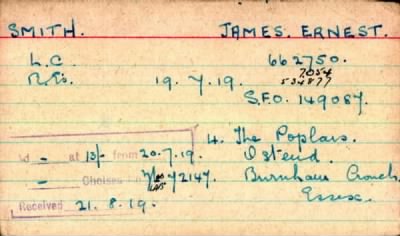 SMITH. JAMES. ERNEST.
L.C. 662750.
R.E's. 19.7.19. 7054
534877
S.F.O. 149087.
4. The Poplars.
at 13/- from 20.7.19. Ostend.
Chelsea 72147. Burnham Crouch.
Essex.
Received 21.8.19.